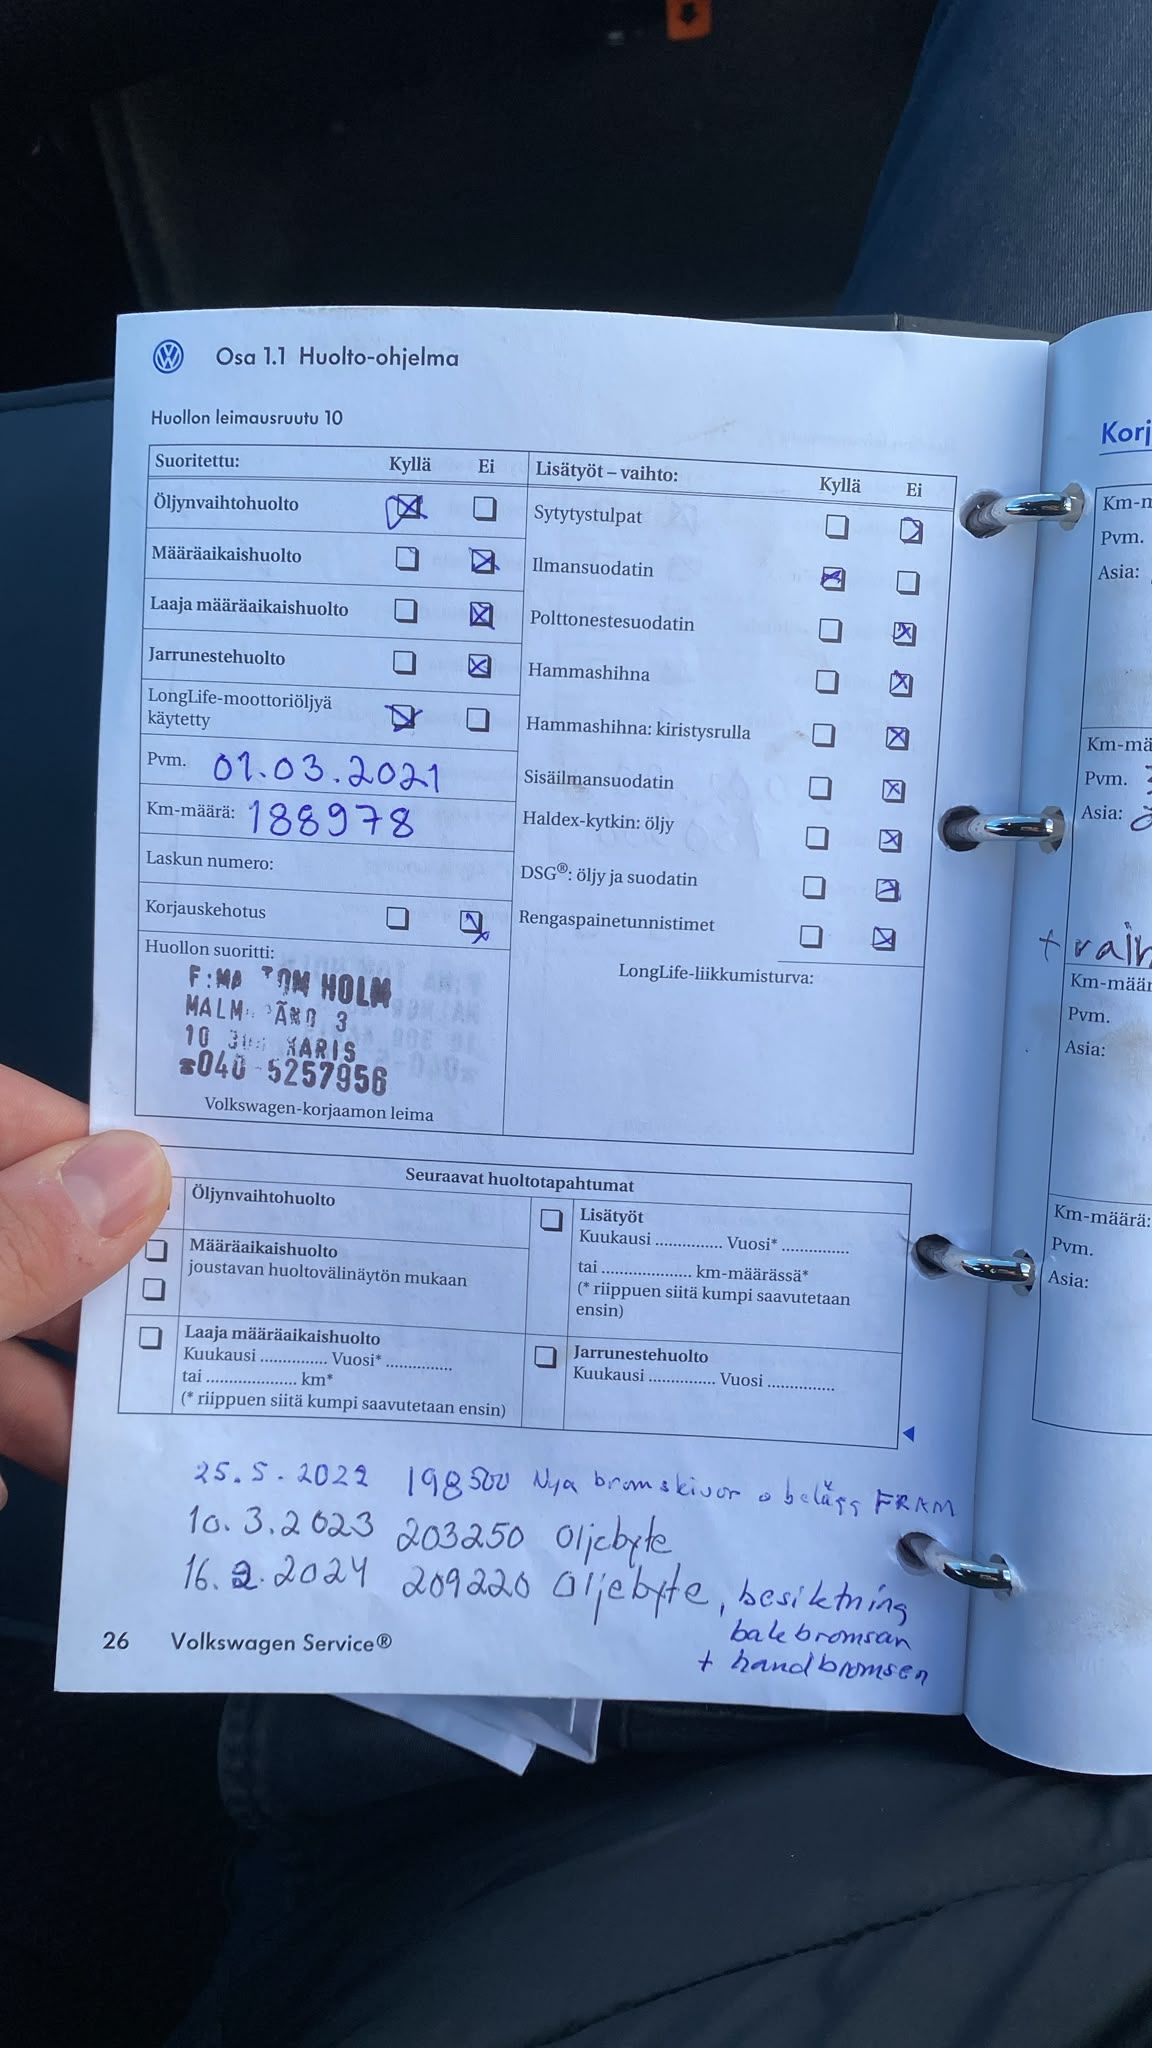 Osa 1.1 Huolto-ohjelma
Huollon leimausruutu 10
Suoritettu: Kyllä Ei
Öljynvaihtohuolto
Määräaikaishuolto
Laaja määräaikaishuolto
Jarrunestehuolto
LongLife-moottoriöljyä
käytetty
Pvm. 01.03.2021
Km-määrä: 188978
Laskun numero:
Korjauskehotus
Huollon suoritti:
F:MA TOM HOLM
MALM 3
10 KARIS
☎040-5257956
Volkswagen-korjaamon leima
Lisätyöt – vaihto: Kyllä Ei
Sytytystulpat
Ilmansuodatin
Polttonestesuodatin
Hammashihna
Hammashihna: kiristysrulla
Sisäilmansuodatin
Haldex-kytkin: öljy
DSG®: öljy ja suodatin
Rengaspainetunnistimet
LongLife-liikkumisturva:
Seuraavat huoltotapahtumat
Öljynvaihtohuolto
Määräaikaishuolto
joustavan huoltovälinäytön mukaan
Laaja määräaikaishuolto
Kuukausi .............. Vuosi* ..............
tai .................... km*
(* riippuen siitä kumpi saavutetaan ensin)
Lisätyöt
Kuukausi .............. Vuosi* ..............
tai .................... km-määrässä*
(* riippuen siitä kumpi saavutetaan
ensin)
Jarrunestehuolto
Kuukausi .............. Vuosi ..............
25.5.2022 198500 Nya bromskivor o belägg FRAM
10.3.2023 203250 Oljebyte
16.2.2024 209220 Oljebyte, besiktning
bakbromsan
+ handbromsen
26 Volkswagen Service®
Korj
Km-m
Pvm.
Asia:
Km-mä
Pvm.
Asia:
Km-määr
Pvm.
Asia:
Km-määrä:
Pvm.
Asia: